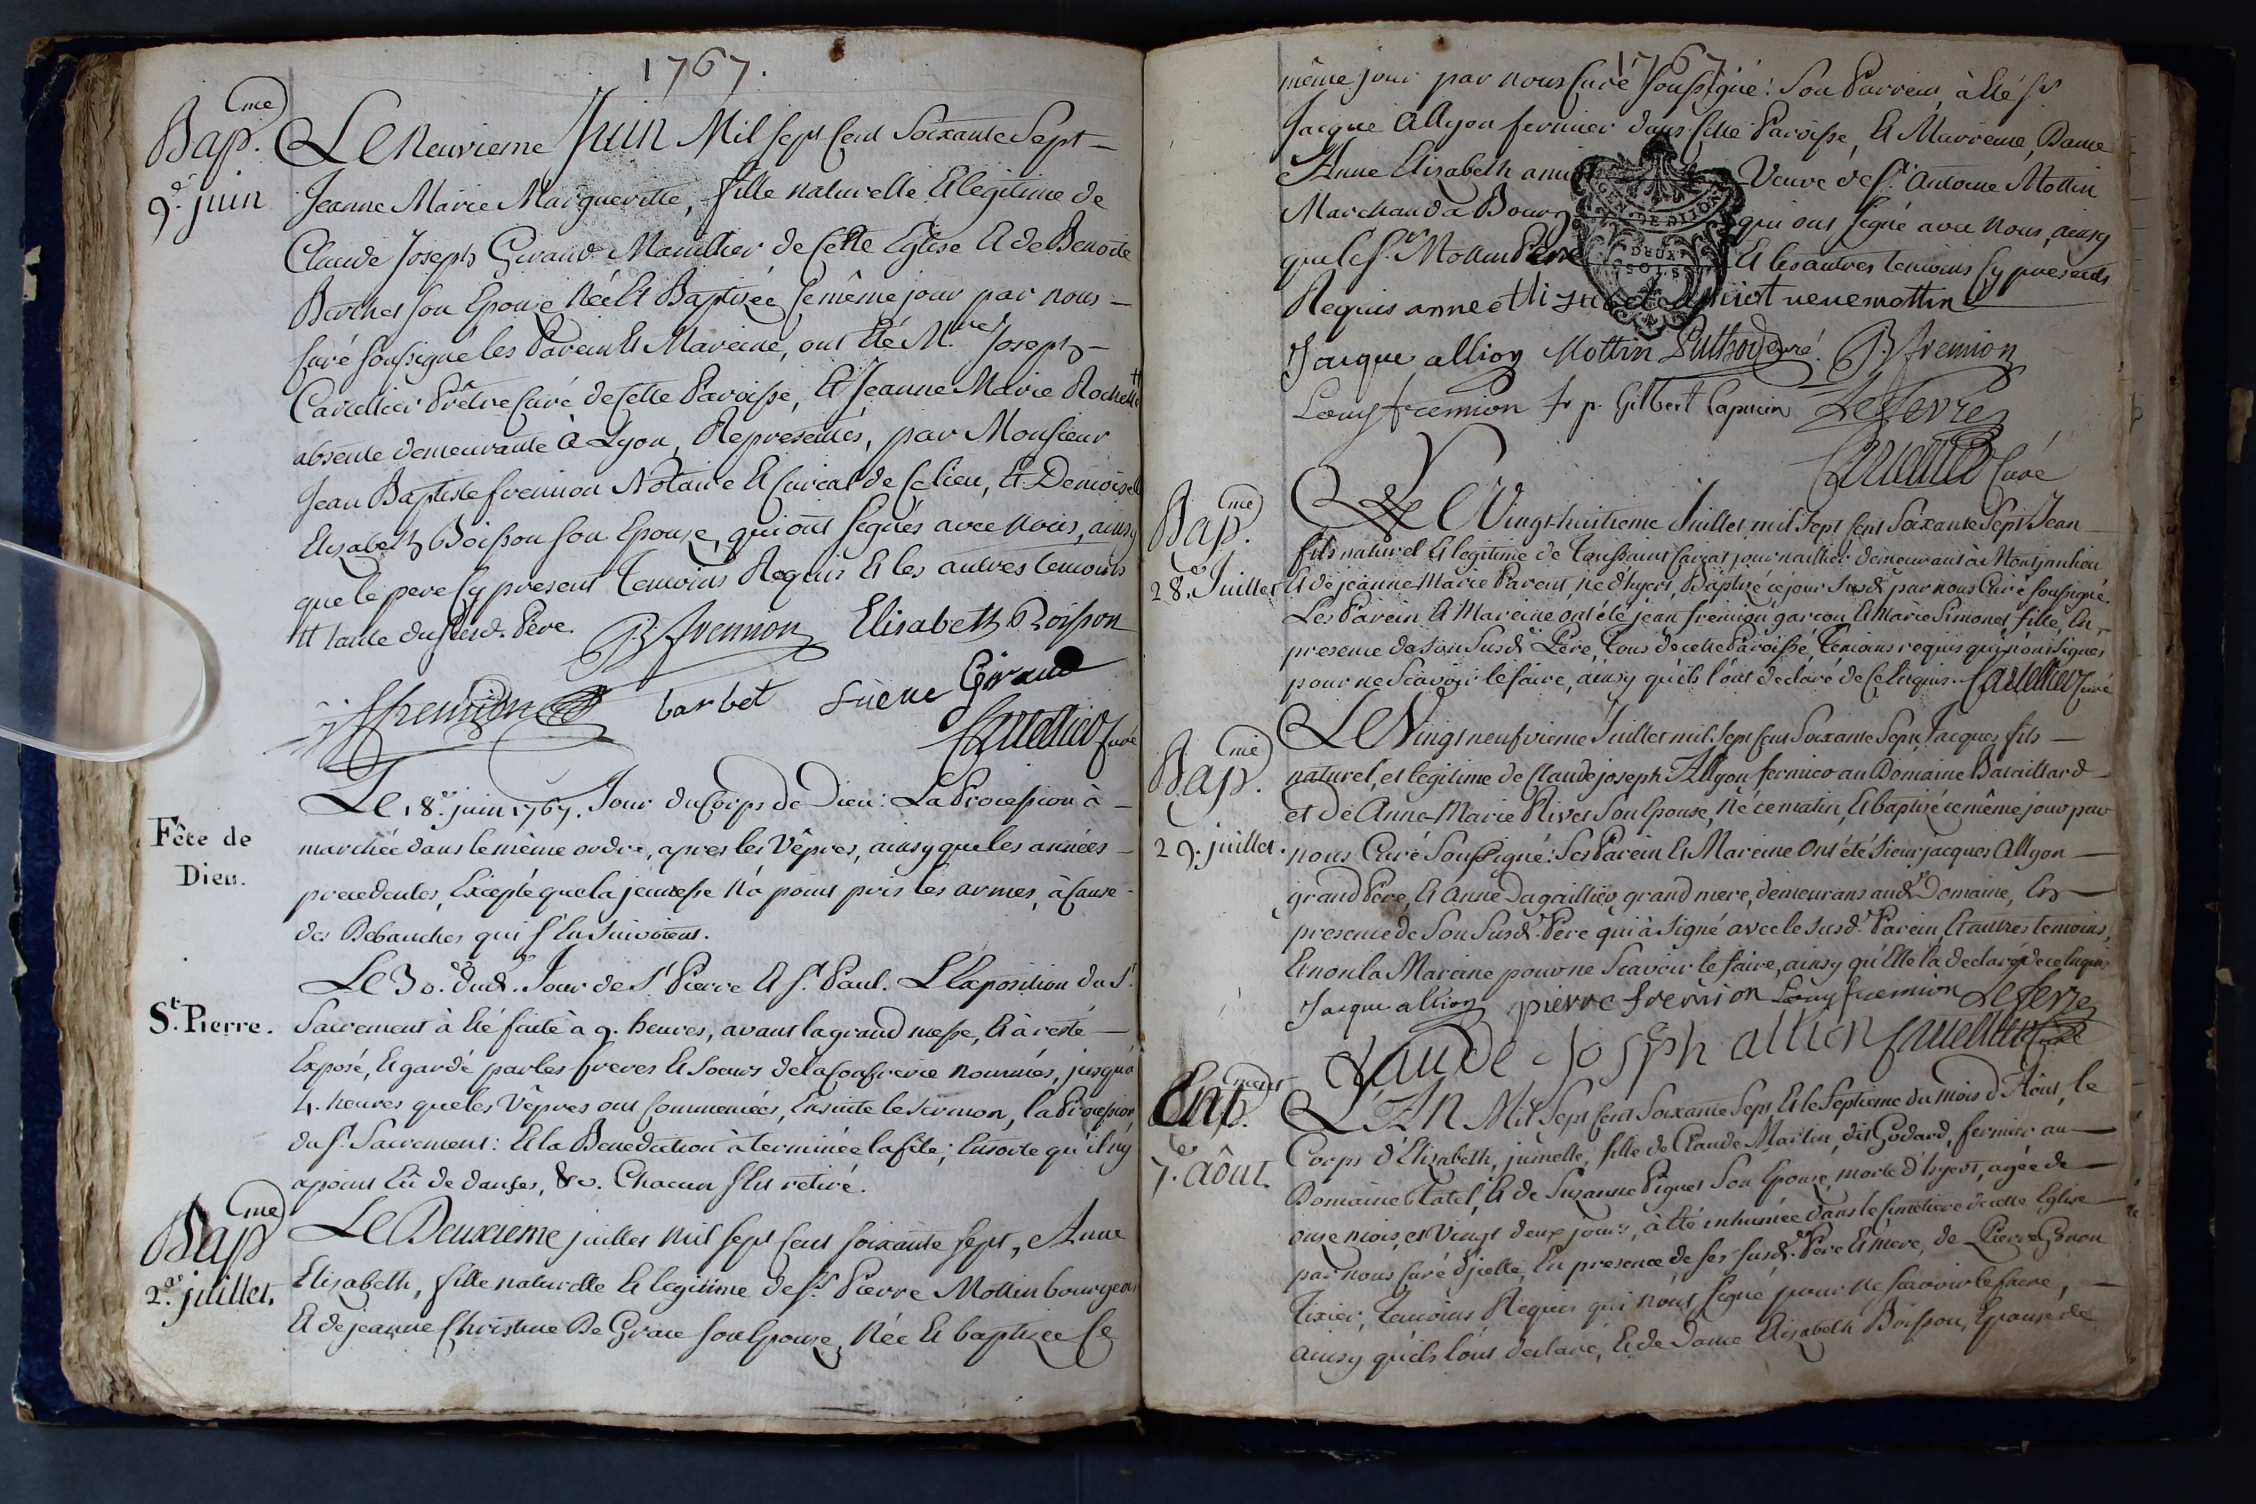 1767.
Bap.me
9.e juin
Le Neuvieme Juin Mil Sept Cent Soixante Sept
Jeanne Marie Margueritte, fille naturelle Et légitime de
Claude Joseph Giraud Manillier de Cette Eglise Et de Benoite
Berchet son Epouse Née Et Baptisée le même jour par nous
Curé soussigné les Parein Et Mareine, ont été M.re Joseph
Cartellier Prêtre Curé de Cette Paroisse, Et Jeanne Marie Rochette
absente demeurante à Lyon, Representés, par Monsieur
Jean Baptiste fremion Notaire Et Curial de Ce lieu, Et Demoiselle
Elisabeth Boisson son Epouse, qui ont signés avec Nous, ainsy
que le pere Cy present Temoins Requis Et les autres temoins
tt tante du susd. Pere.
B fremion Elisabeth Boisson
j fremion barbet Suene Giraud
Cartellier Curé
Fête de
Dieu.
Le 18.e juin 1767. Jour du Corps de Dieu: La Procession à
marchée dans le même ordre, apres les Vêpres, ainsy que les années
precedentes, Excepté que la jeunesse N'à point pris les armes, à Cause
des Debauches qui s'En suivoient.
St. Pierre.
Le 30.e dud. Jour de St Pierre Et St. Paul. L'Exposition du St.
Sacrement à Eté faite à 9. heures, avant la grand messe, Et à resté
Exposé, Et gardé par les freres Et Soeurs de la Confrerie nommés, jusqu'à
4. heures que les Vêpres ont Commencées, Ensuite le sermon, la Procession
du St. Sacrement: Et la Benediction à terminée la fête; Ensorte qu'il n'y
a point Eû de danses, &c. Chacun s'Est retiré.
Bap.me
2.e juillet.
Le Deuxieme juillet mil sept cent soixante sept, Anne
Elisabeth, fille naturelle Et legitime de sr. Pierre Mottin bourgeois
Et de jeanne Christine De Grave son Epouse, Née Et baptisée le
1767
même jour par nous Curé soussigné: Son Parrein, à Eté sr
Jacque Allyon fermier dans cette Paroisse, Et Marreine, Dame
Anne Elisabeth Veuve de sr. Antoine Mottin
Marchand à Bourg qui ont signé avec Nous, ainsy
que le sr. Mottin Pere Et les autres temoins Cy presents
Requis anne veuve mottin
GEN. DE DIJON
DEUX
SOLS
Jacque allion Mottin curé. B fremion
Louy fremion fr p. Gilbert Capucin Lefevre
Cartellier Curé
Bap.me
28.e Juillet
Le Vingt-huitieme Juillet mil Sept Cent Soixante Sept Jean
fils naturel Et legitime de Toussaint Carat journaillier demeurant à Montjanlion
Et de jeanne Marie Parent, né d'hyert, Baptisé ce jour susd. par nous Curé soussigné.
Les Parein Et Mareine ont été jean fremion garçon Et Marie Simonet fille, En
presence de son Susd. Pere, Tous de cette Paroisse, Temoins requis qui n'ont signés
pour ne Scavoir le faire, ainsy qu'ils l'ont declaré de Ce Enquis. Cartellier Curé
Bap.me
29. juillet.
Le Vingt neufvieme Juillet mil Sept Cent Soixante Sept, Jacques fils
naturel, et legitime de Claude joseph Allyon fermier au Domaine Bataillard
et de Anne Marie Rivet Son Epouse, né ce matin, Et baptisé ce même jour par
nous Curé Soussigné: Ses Parein Et Mareine ont été Sieur jacques Allyon
grand Pere, Et Anne Dagaillier grand mere, demeurans aud. Domaine, En
presence de Son Susd. Pere qui à Signé avec le susd. Parein, Et autres temoins,
Et non la Mareine pour ne Scavoir le faire, ainsy qu'Elle l'a declaré de ce Enquis
Jacque allion pierre fremion Louy fremion Lefevre
Claude Joseph allion Cartellier Curé
Ent.ment
7.e aôut
L'An Mil Sept Cent Soixante Sept Et le Septieme du mois d'Aôut, le
Corps d'Elizabeth, jumelle, fille de Claude Martin, dit Godard, fermier au
Domaine Platel, Et de Suzanne Piquet Son Epouse, morte d'hyert, agée de
onze mois, et Vingt deux jours, à Eté inhumée dans le Cimetiere de cette Eglise
par nous Curé d'jcelle, En presence de ses susd. Pere Et mere, de Pierre Genou
Tixier, Temoins Requis qui n'ont signé pour ne scavoir le faire,
ainsy qu'ils l'ont declaré, Et de Dame Elisabeth Boisson, Epouse de